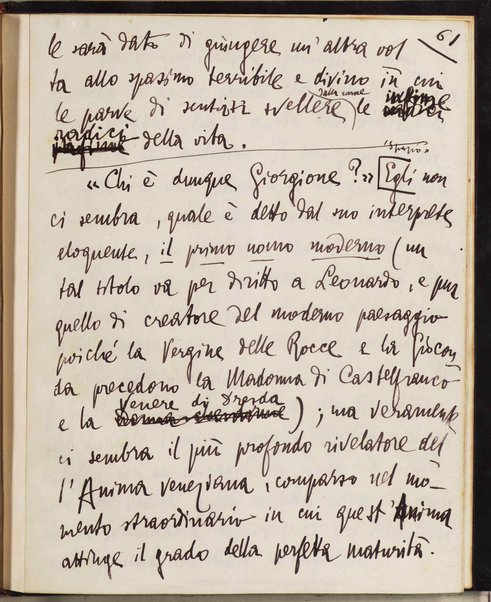 61
le sarà dato di giungere un'altra vol
ta allo spasimo terribile e divino in cui
le parve di sentirsi svellere dalla carne le intime
radici della vita.
"Spazio"
«Chi è dunque Giorgione?» Egli non
ci sembra, quale è detto dal suo interprete
eloquente, il primo uomo moderno (un
tal titolo va per diritto a Leonardo, e pur
quello di creatore del moderno paesaggio
poiché la Vergine delle Rocce e la Giocon
da precedono la Madonna di Castelfranco
e la Venere di Dresda); ma veramente
ci sembra il più profondo rivelatore del
l'Anima veneziana, comparso nel mo-
mento straordinario in cui quest'Anima
attinge il grado della perfetta maturità.